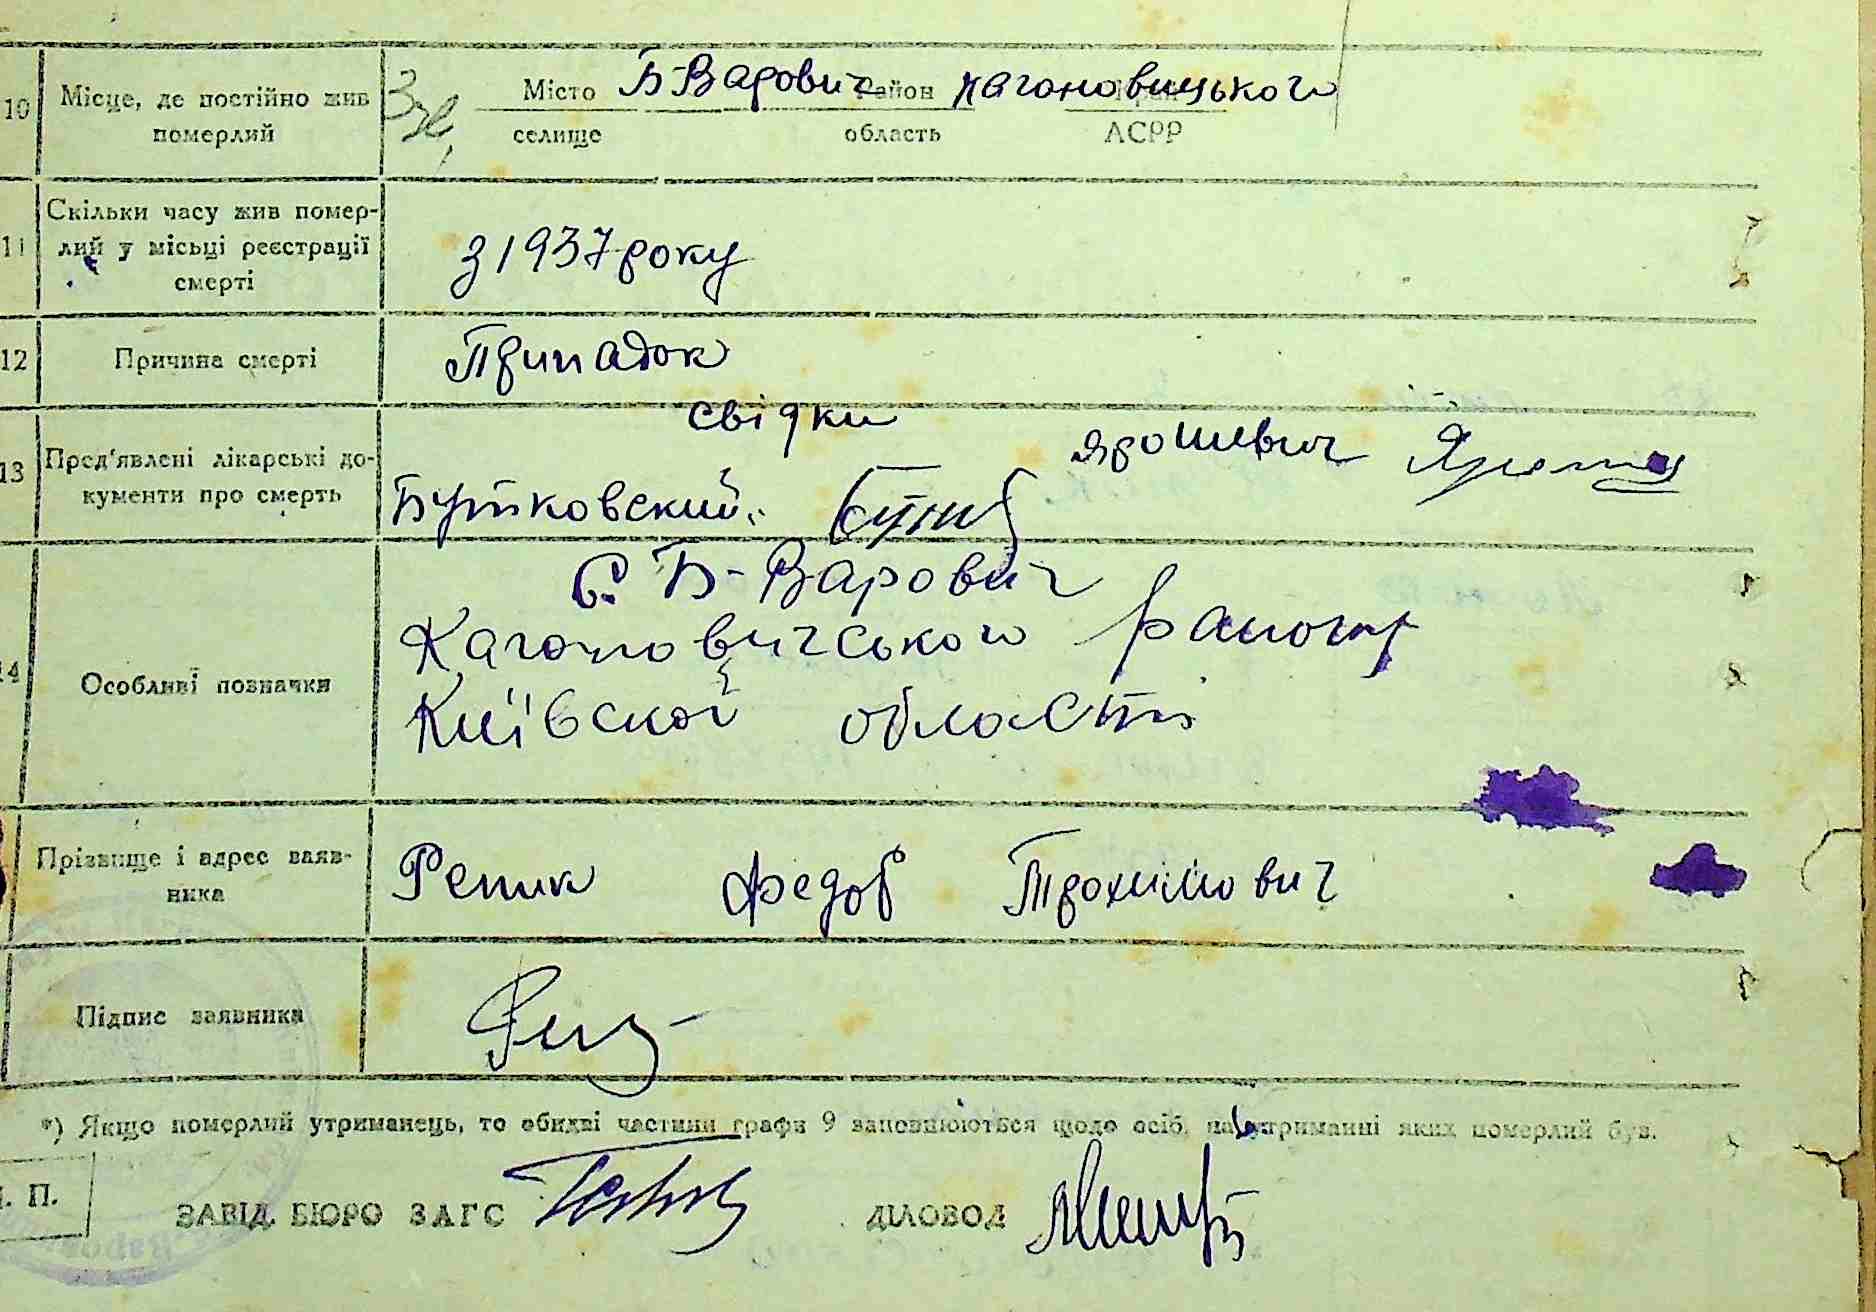 10 Місце, де постійно жив померлий
Місто Б-Варович Район Кагоновицького
селище область АСРР
11 Скільки часу жив помер-
лий у місьці реєстрації
смерті
з 1937 року
12 Причина смерті
Припадок
свідки
13 Пред'явлені лікарські до-
кументи про смерть
Ярошевич
Бутковский
14 Особливі позначки
С. Б-Варович
Кагоновичського району
Київскої області
Прізвище і адрес заяв-
ника
Репик Федор Трохимович
Підпис заявника
*) Якщо померлий утриманець, то обидві частини графи 9 заповнюються щодо осіб, на утриманні яких померлий був.
М. П.
ЗАВІД. БЮРО ЗАГС ДІЛОВОД